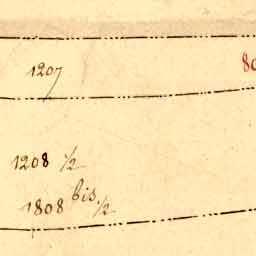 1207
1208 1/2
1808 bis 1/2